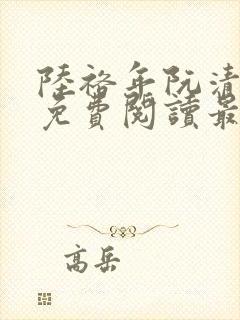 陸裕年阮清
免費閱讀最
高岳